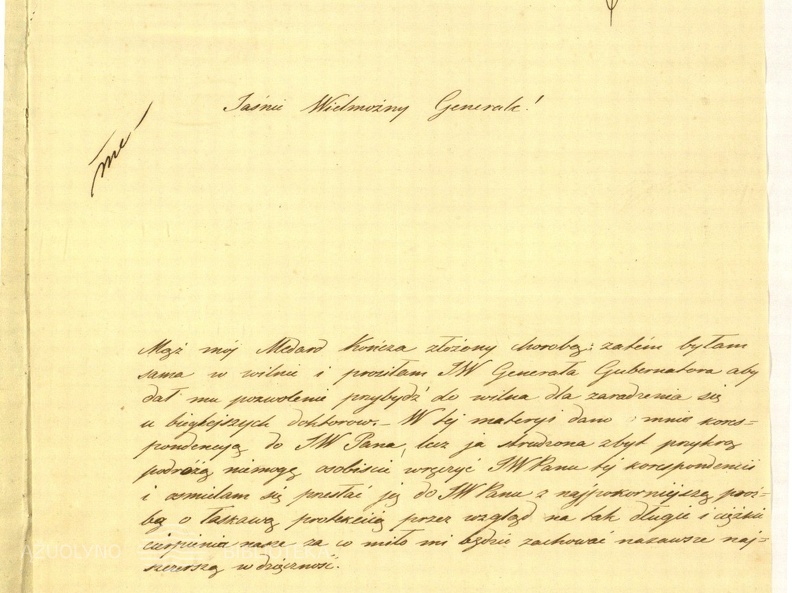 Jaśnie Wielmożny Generale!
Mąż mój Medard Kończa złożony chorobą; zatém byłam
sama w wilnie i prosiłam JW Generała Gubernatora aby
dał mu pozwolenie przybydź do wilna dla zaradzenia się
u bieglejszych doktorow. - W tej materyi dano mnie kores-
pondencyą do JW Pana, lecz ja strudzona zbyt przykrą
podróżą niemogę osobiscie wręczyć JW Panu tej korespondencii
i osmielam się przesłać ją do JW Pana z najpokorniejszą proź-
bą o łaskawą protekcią przez wzgląd na tak długie i ciężkie
cierpienia nasze za co miło mi będzie zachować nazawsze naj-
szczerszą wdzięczność.
AZUOLYNO BIBLIOTEKA